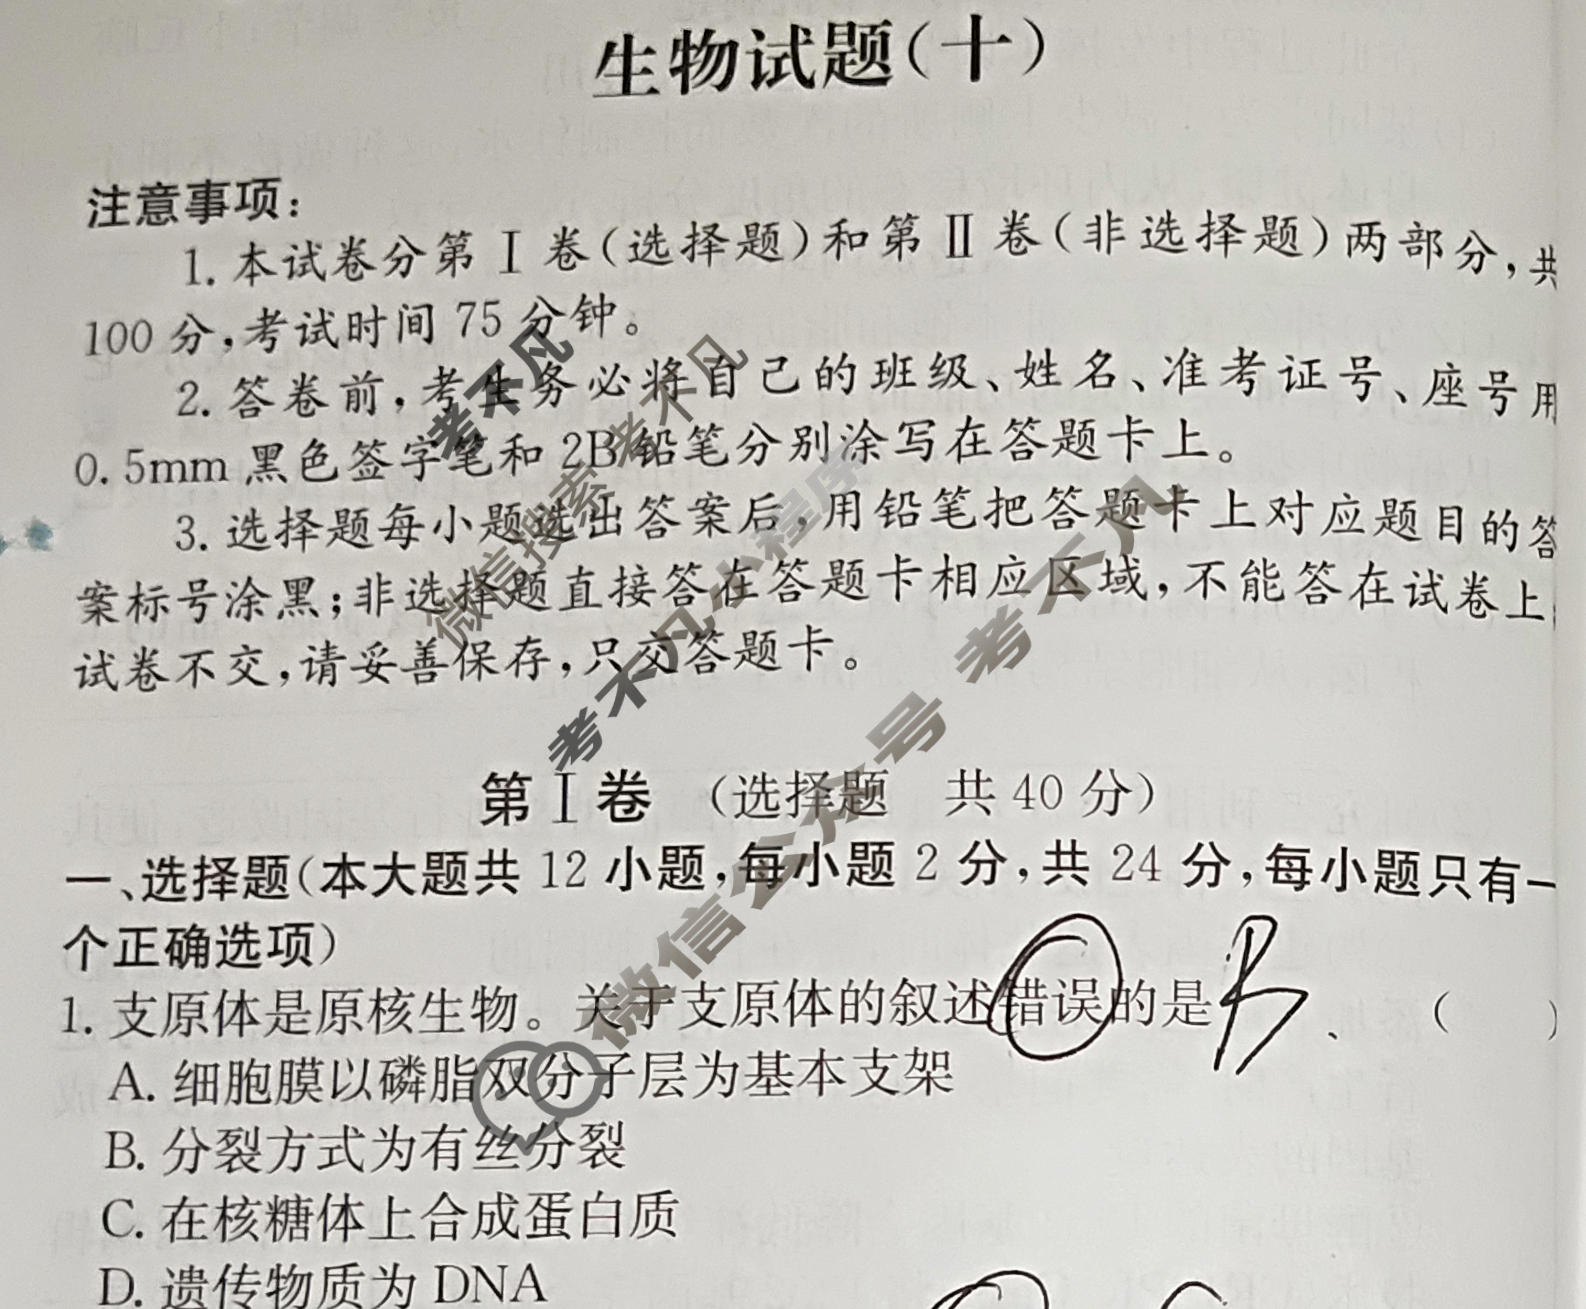 生物试题(十)
注意事项:
1. 本试卷分第Ⅰ卷(选择题)和第Ⅱ卷(非选择题)两部分,共
100 分,考试时间 75 分钟。
2. 答卷前,考生务必将自己的班级、姓名、准考证号、座号用
0.5mm 黑色签字笔和 2B 铅笔分别涂写在答题卡上。
3. 选择题每小题选出答案后,用铅笔把答题卡上对应题目的答
案标号涂黑;非选择题直接答在答题卡相应区域,不能答在试卷上
试卷不交,请妥善保存,只交答题卡。
考不凡
微信搜索 考不凡
考不凡小程序
微信公众号 考不凡
第Ⅰ卷 (选择题 共 40 分)
一、选择题(本大题共 12 小题,每小题 2 分,共 24 分,每小题只有一
个正确选项)
1. 支原体是原核生物。关于支原体的叙述错误的是 B、 ( )
A. 细胞膜以磷脂双分子层为基本支架
B. 分裂方式为有丝分裂
C. 在核糖体上合成蛋白质
D. 遗传物质为 DNA